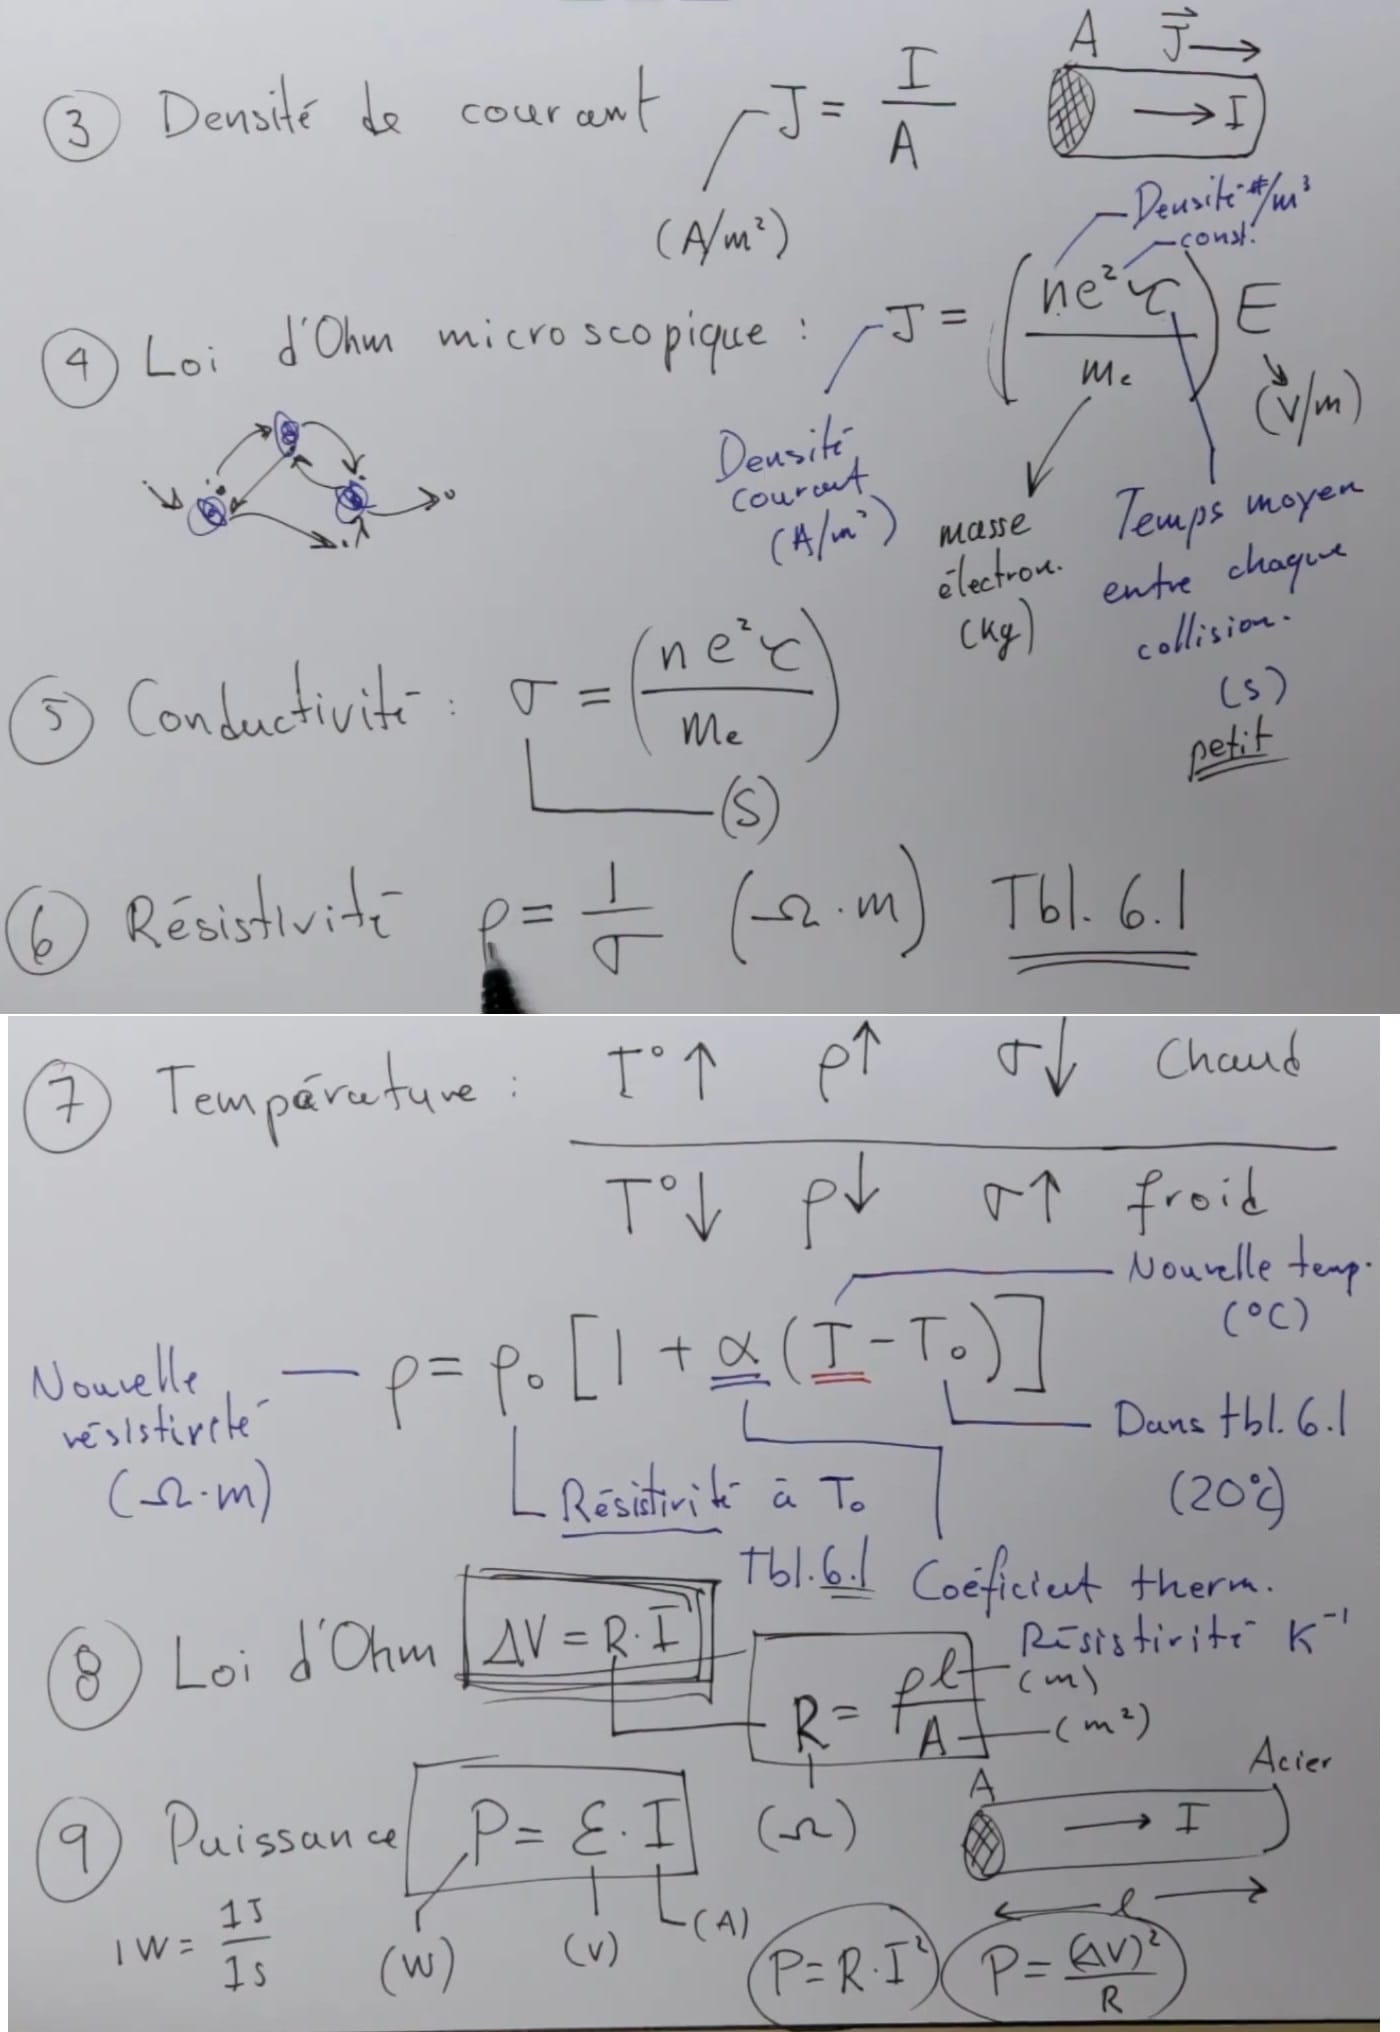 A J⃗
③ Densité de courant J = I/A
I
(A/m²)
Densité #/m³
const.
④ Loi d'Ohm microscopique : J = (ne²τ/me) E
(V/m)
Densité
courant
(A/m²)
masse
électron.
(kg)
Temps moyen
entre chaque
collision.
(s)
petit
⑤ Conductivité : σ = (ne²τ/me)
(S)
⑥ Résistivité ρ = 1/σ (Ω·m) Tbl. 6.1
⑦ Tempárature : T°↑ ρ↑ σ↓ Chaud
T°↓ ρ↓ σ↑ froid
Nouvelle temp.
(°C)
Nouvelle
résistivité
(Ω·m)
ρ = ρ₀ [1 + α (T - T₀)]
Dans tbl. 6.1
(20°C)
Résistivité à T₀
Tbl. 6.1
Coéficient therm.
Résistivité K⁻¹
⑧ Loi d'Ohm ΔV = R·I
R = ρl/A
(m)
(m²)
(Ω)
⑨ Puissance P = ε·I
(W) (V) (A)
1W = 1J/1s
A Acier
I
l
P = R·I²
P = (ΔV)²/R